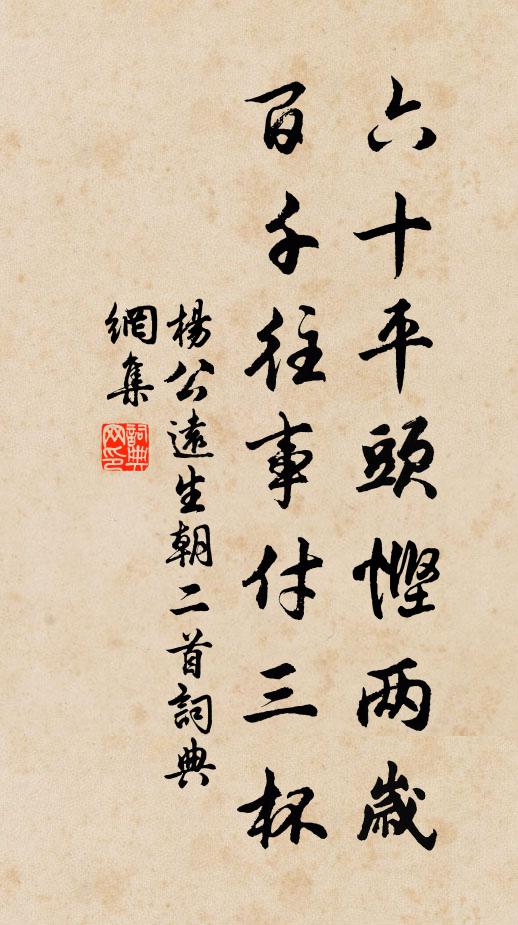 六十平頭慳两歲
百千往事付三杯
楊公遠生朝二首詞典
網集
詞典
网印